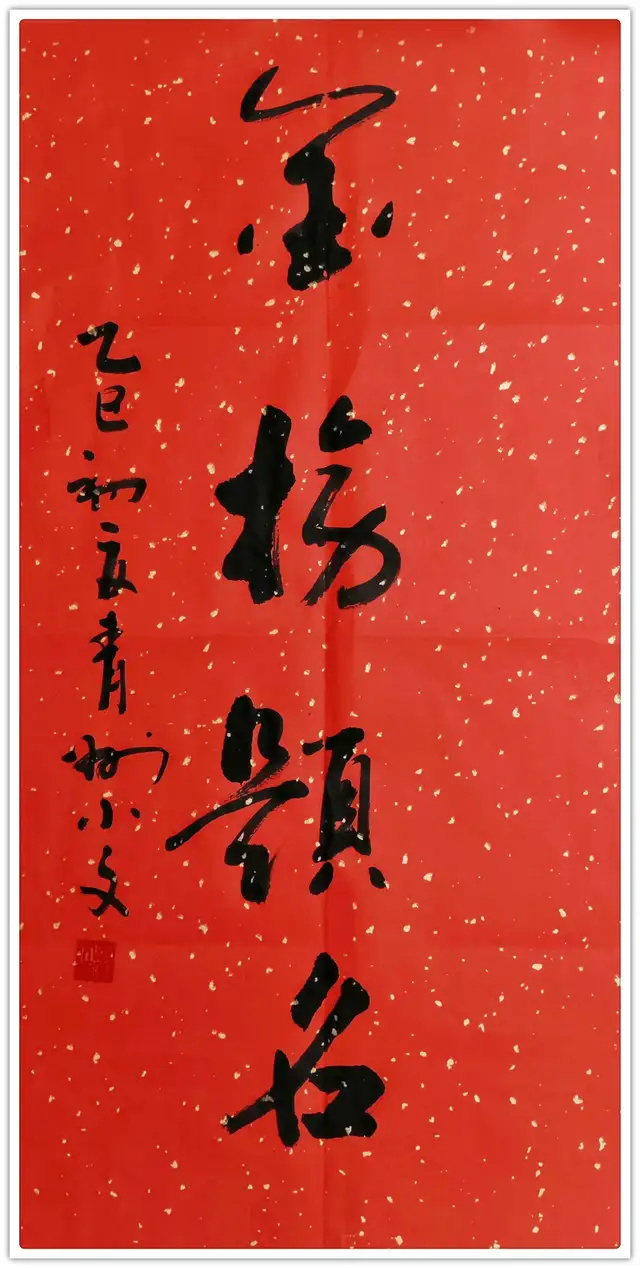 金榜題名
乙巳初夏青州小文